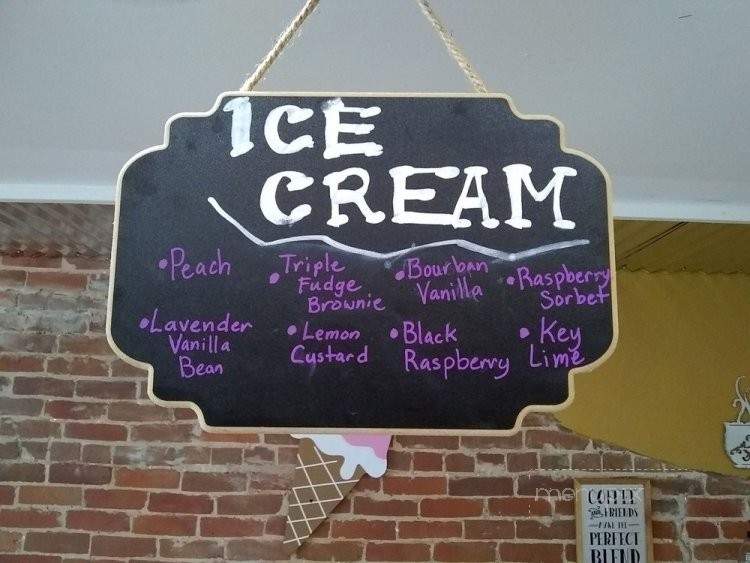 ICE
CREAM
•Peach
•Triple
Fudge
Brownie
•Bourban
Vanilla
•Raspberry
Sorbet
•Lavender
Vanilla
Bean
•Lemon
Custard
•Black
Raspberry
•Key
Lime
COFFEE
and FRIENDS
MAKE THE
PERFECT
BLEND